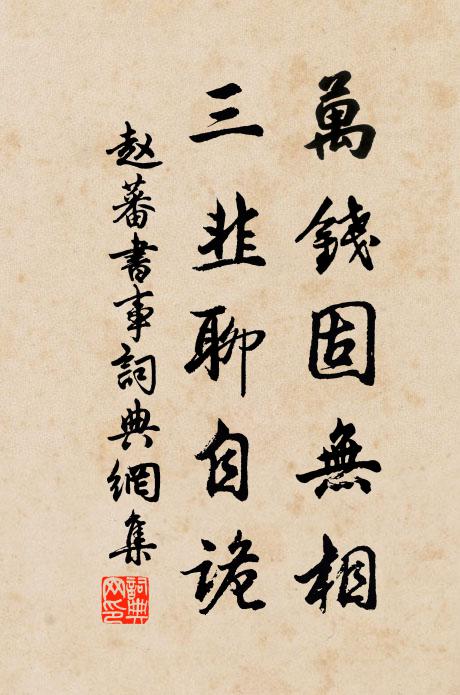 萬錢固無相
三韭聊自詭
赵蕃書事詞典網集
詞典网印